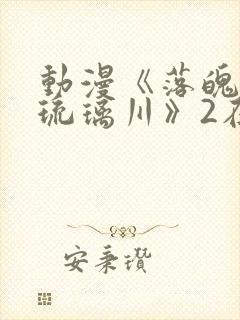 動漫《落魄
琉璃川》2在
安秉瓚